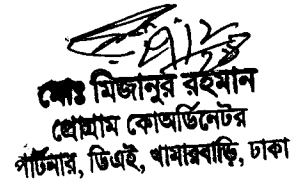 মোঃ মিজানুর রহমান
প্রোগ্রাম কোঅর্ডিনেটর
পার্টনার, ডিএই, খামারবাড়ি, ঢাকা